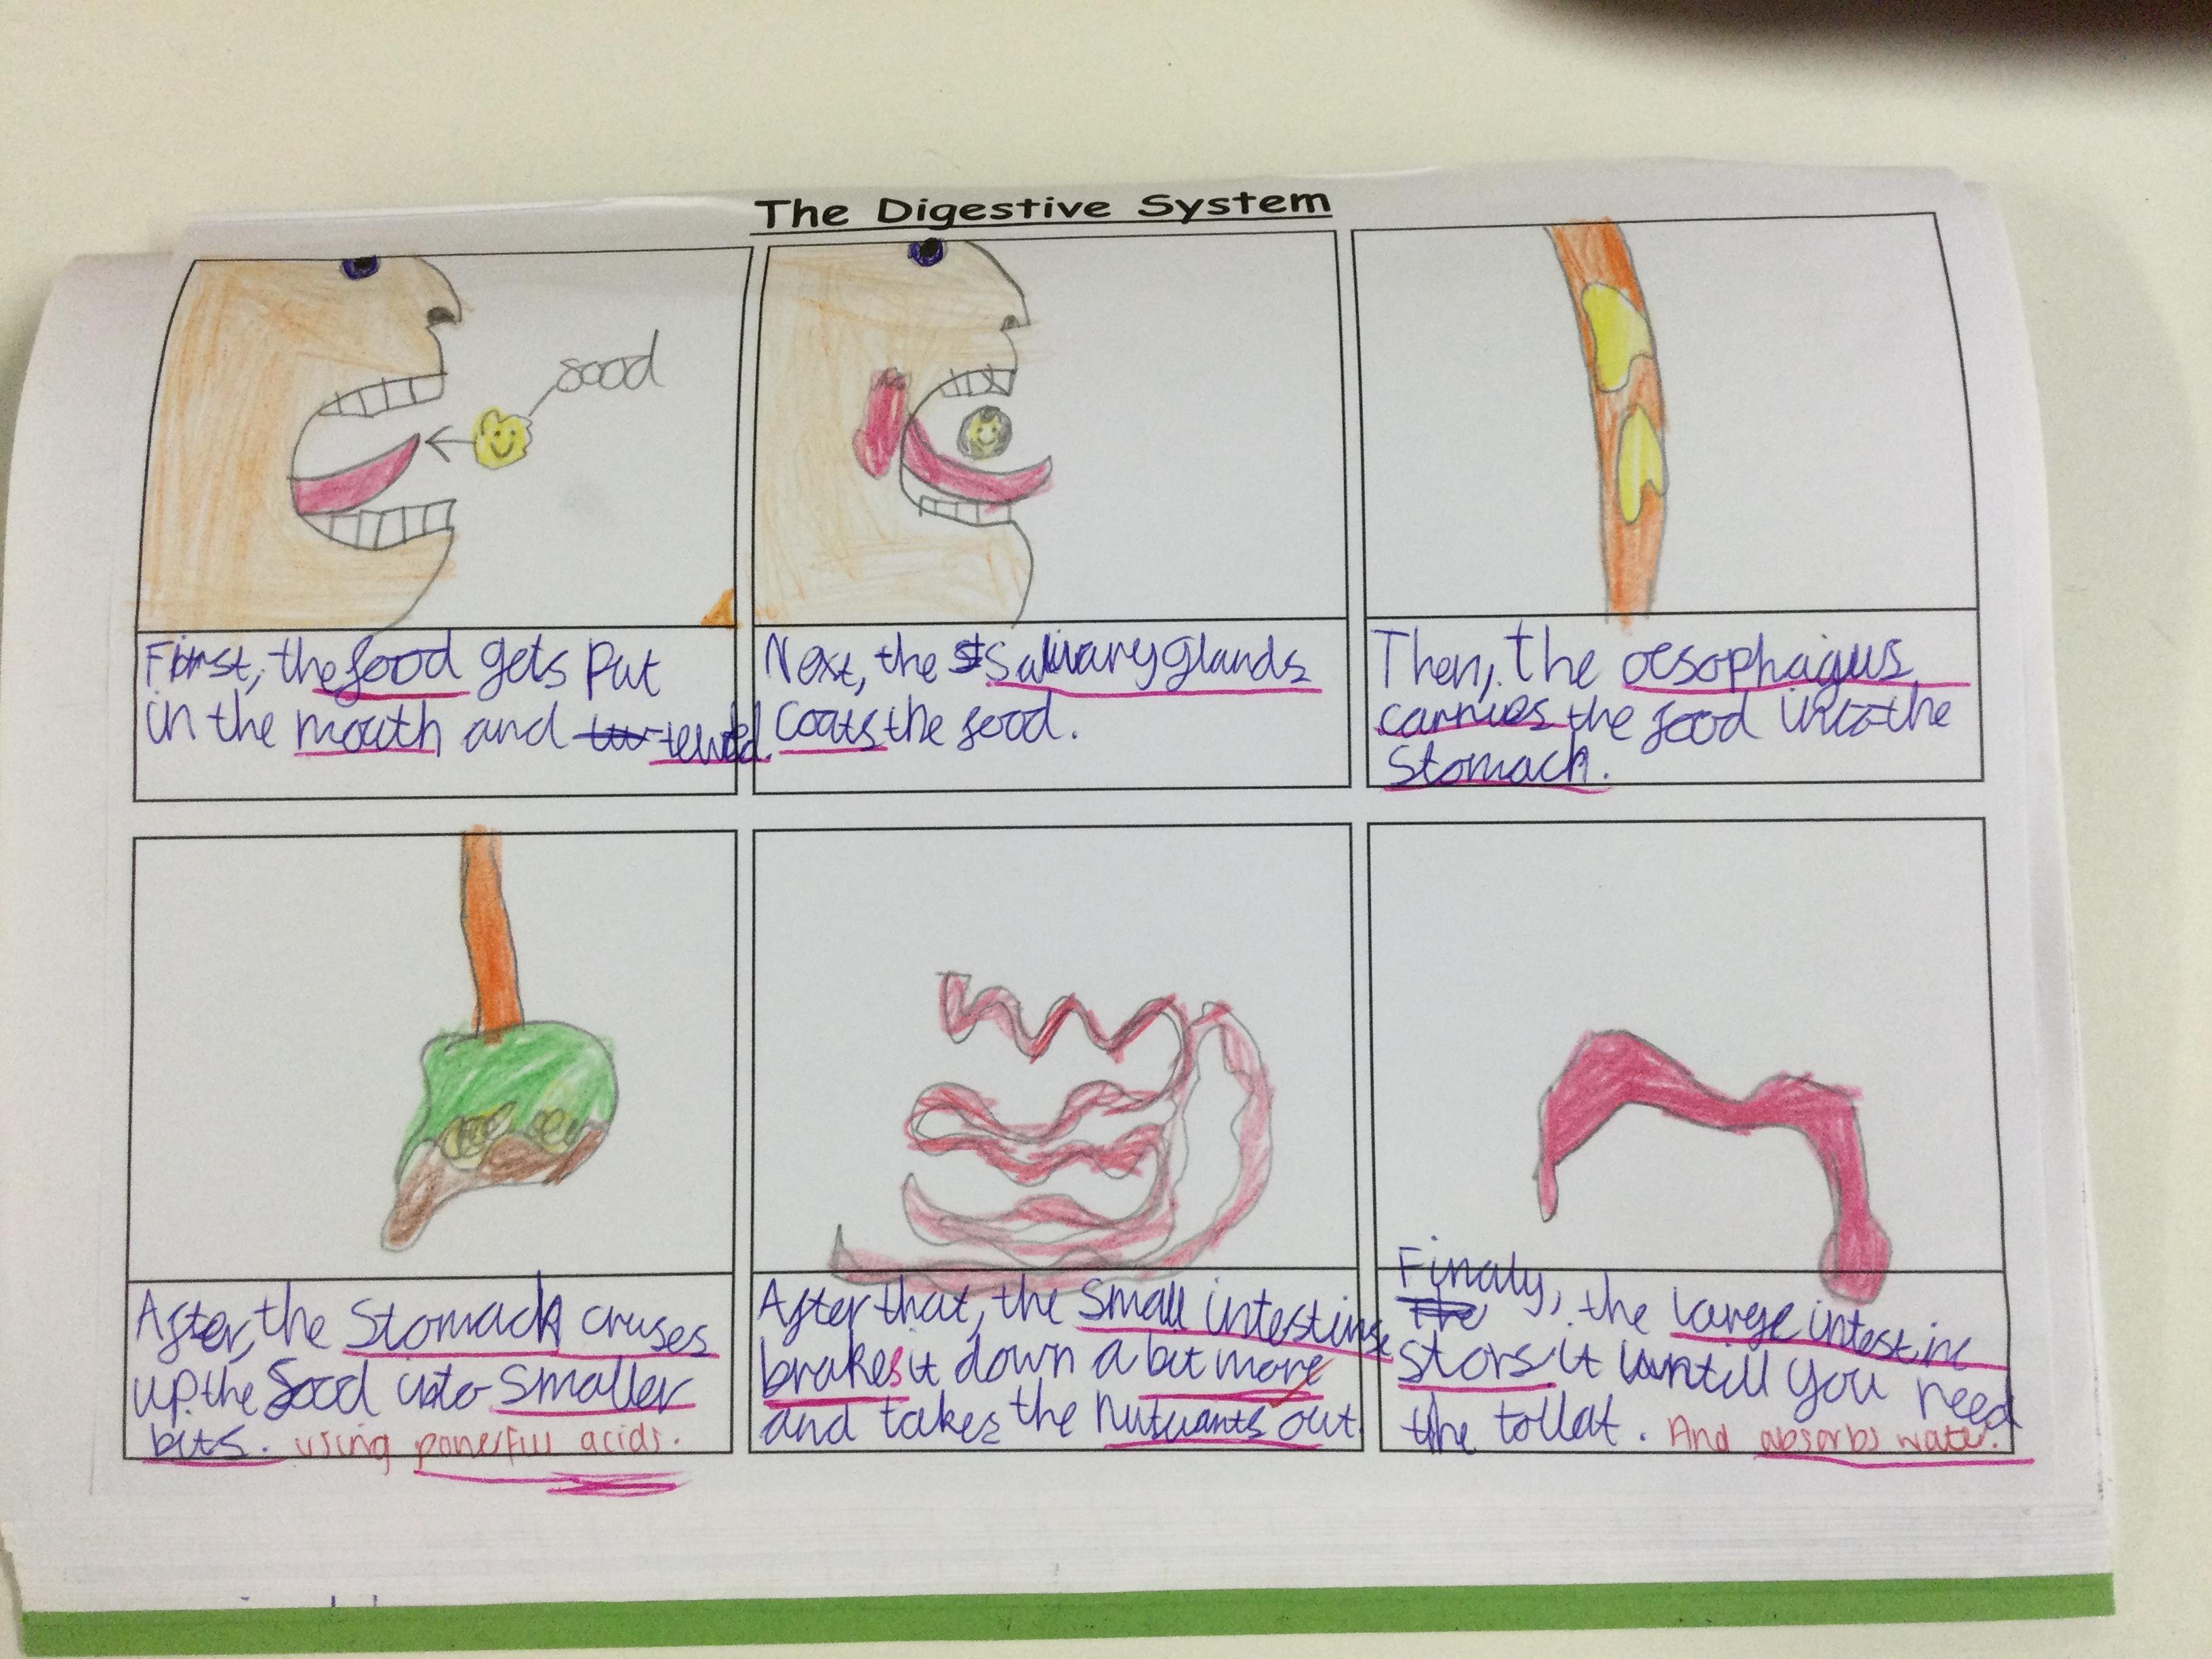 The Digestive System
food
First, the food gets put
in the mouth and tewed.
Next, the Salivary glands
coats the food.
Then, the oesophagus
carries the food into the
Stomach.
After, the Stomach cruses
up the food into smaller
bits. using powerful acids.
After that, the Small intestine
brakes it down a bit more
and takes the nutuants out.
Finaly, the large intestine
stors it untill you need
the tollat. And absorbs water.